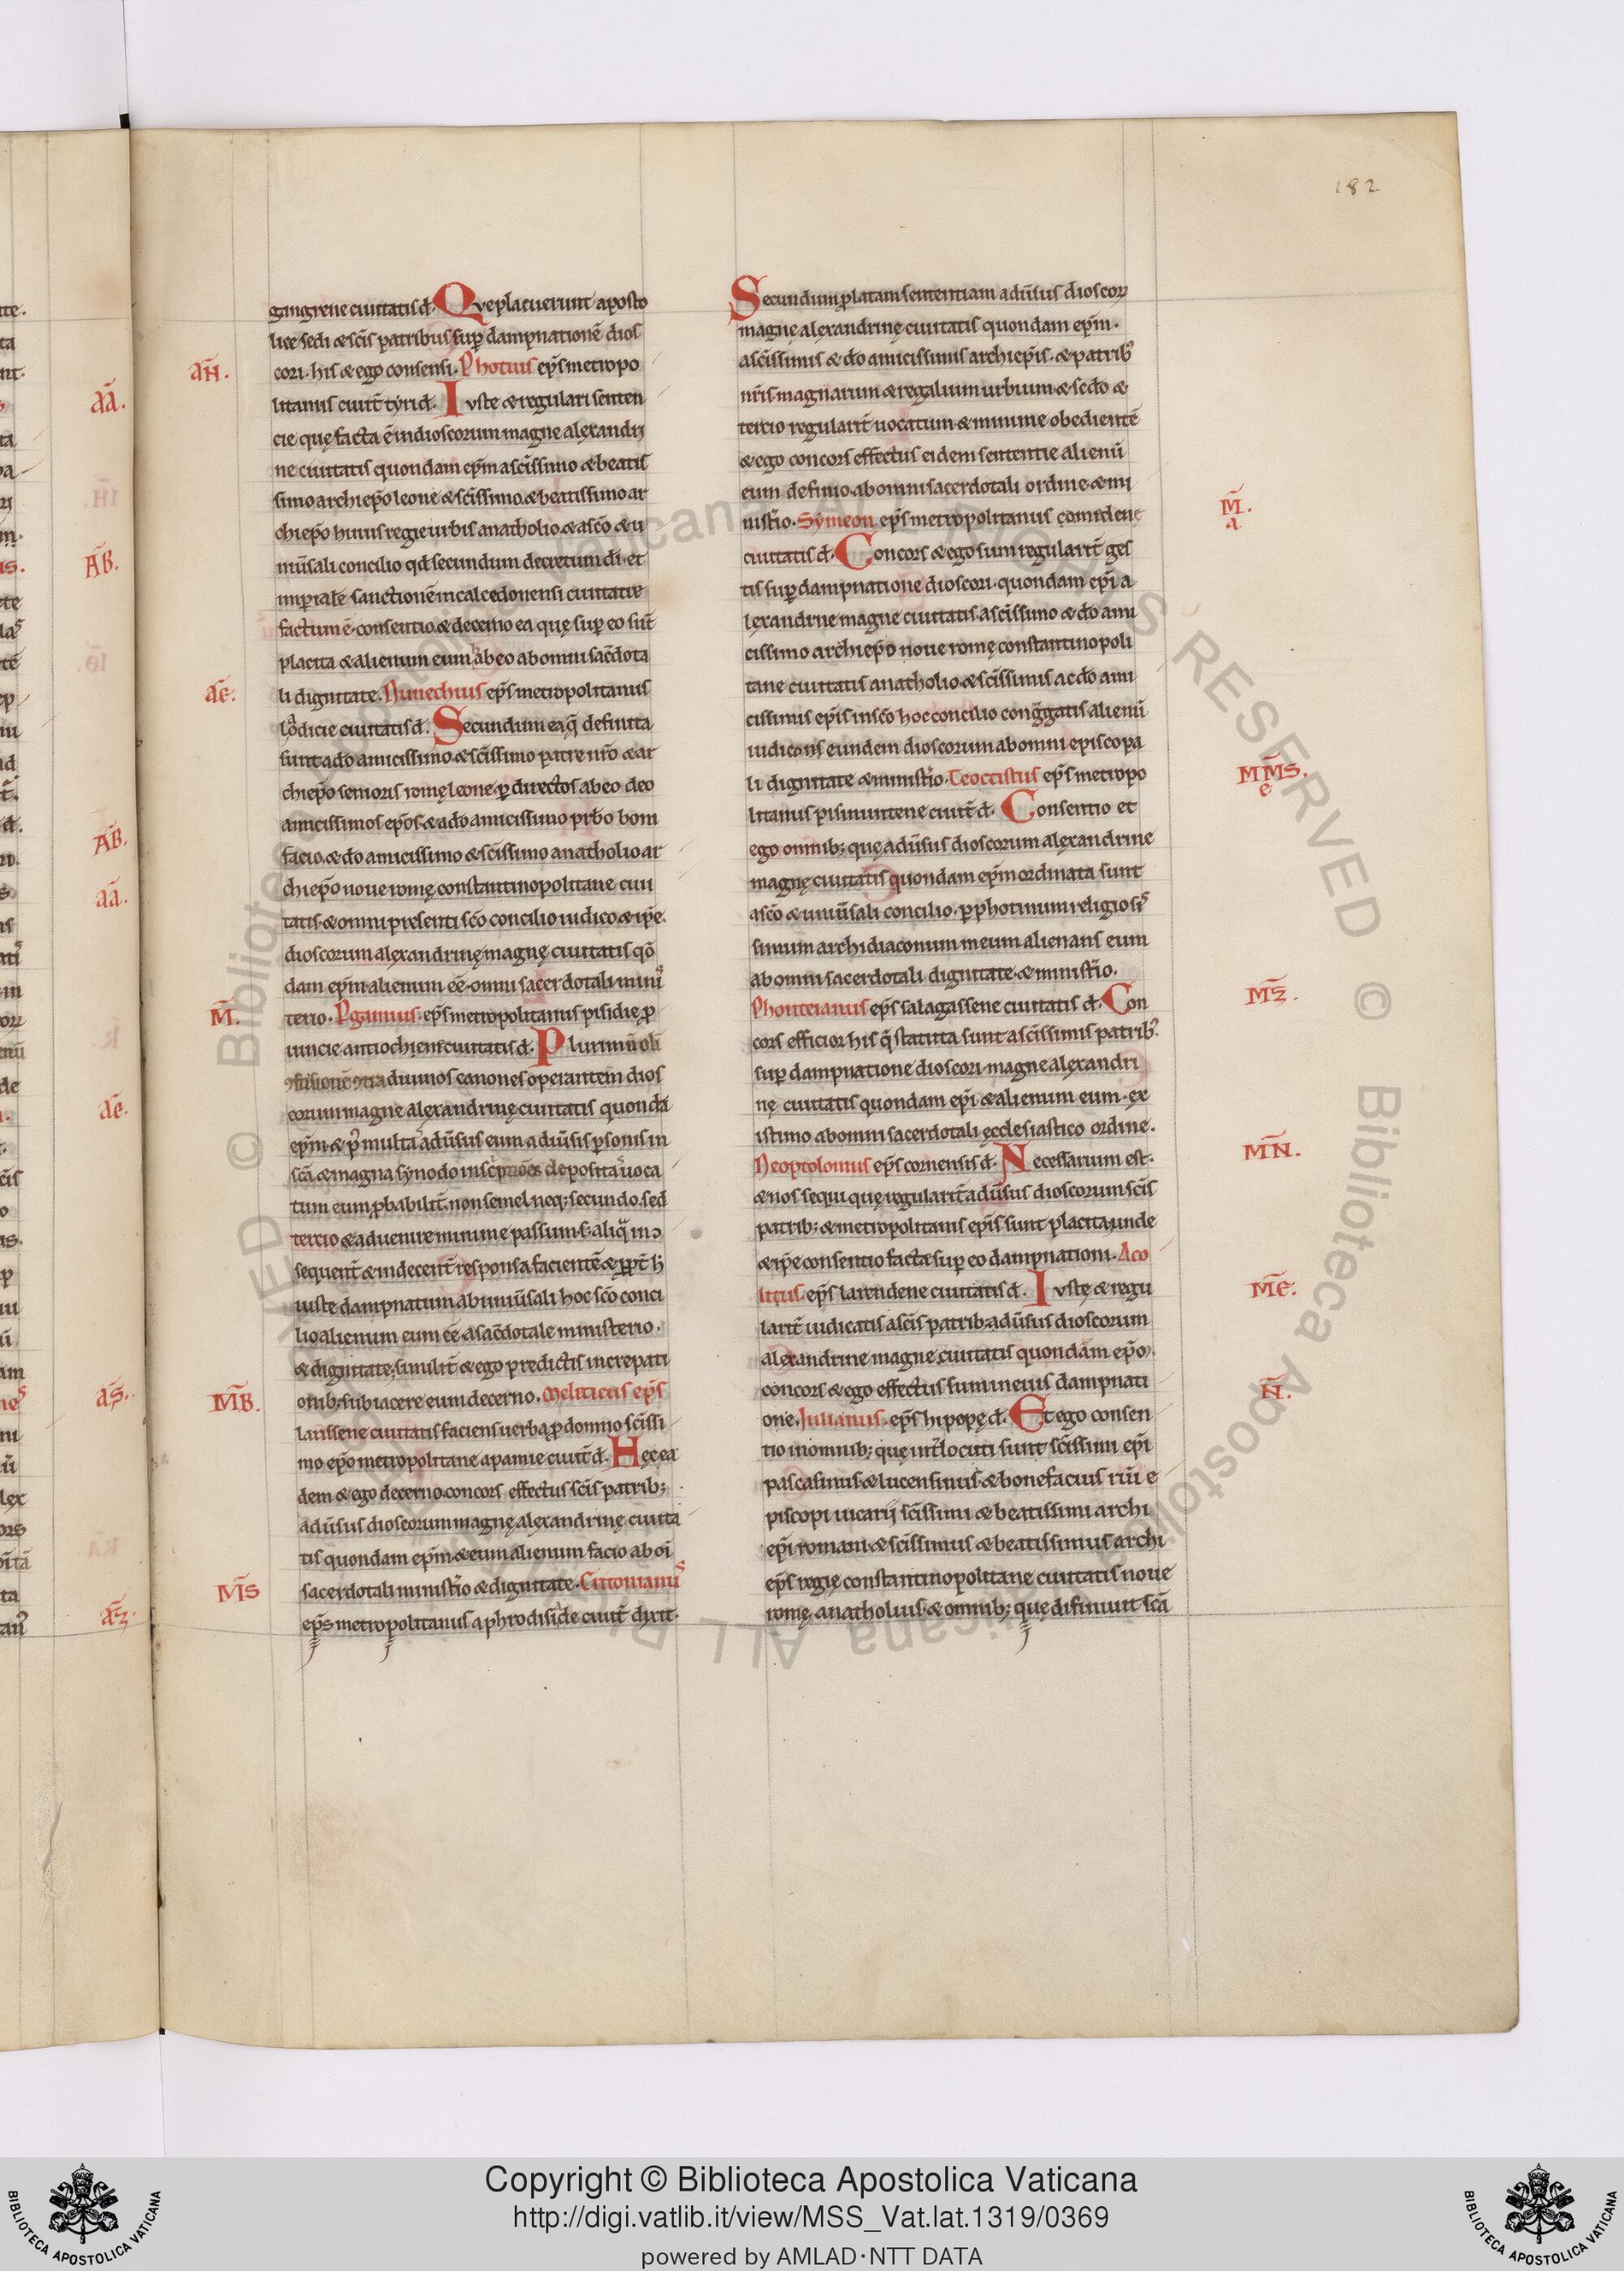 182
gangrene ciuitatis d̄. Que placuerunt aposto
lice sedi & sc̄is patribus sup̱ dampnationē dios
cori. his & ego consensi. Photius ep̄s metropo
litanus ciuit̄ tyri d̄. Iuste & regulari senten
cie quę facta ē in dioscorum magne alexandri
ne ciuitatis quondam ep̄m a sc̄issimo & beatis
simo archiep̄o leone & sc̄issimo & beatissimo ar
chiep̄o huius regie urbis anatholio & a sc̄o & u
niu̅sali concilio qd̄ secundum decretum di̅ et
imperiale sanctionē in calcedonensi ciuitate
factum ē consentio & decerno ea quę sup̱ eo sūt
placita & alienum eum habeo ab omni sac̄dota
li dignitate. Nunechius ep̄s metropolitanus
laodicie ciuitatis d̄. Secundum ea q̄ definita
sunt a do̅ amicissimo & sc̄issimo patre nr̄o & ar
chiep̄o senioris romę leone p̱ directos ab eo deo
amicissimos ep̄os & a do̅ amicissimo prb̄o boni
facio & do̅ amicissimo & sc̄issimo anatholio ar
chiep̄o noue romę constantinopolitane ciui
tatis & omni presenti sc̄o concilio iudico & ip̄e
dioscorum alexandrinę magnę ciuitatis quō
dam ep̄m alienum ēe omni sacerdotali minis
terio. Pgamius ep̄s metropolitanus pisidię p̱
uincie antiochiene ciuitatis d̄. Plurimū oli
ꝯfusionē ꝯtra diuinos canones operantem dios
corum magne alexandrinę ciuitatis quondā
ep̄m & p̱ multa adu̅sus eum a diu̅sis p̱sonis in
sc̄a & magna synodo inscriptiones deposita uoca
tum eum probabilit̄ non semel neq; secundo sed
tercio & aduenire minime passum s; aliq̄ inco
sequent̄ & indecent̄ responsa facientē & ppt̄ h̄
iuste dampnatum ab uniu̅sali hoc sc̄o conci
lio alienum eum ēe a sac̄dotale ministerio
& dignitate similit̄ & ego predictis increpati
onib; subiacere eum decerno. Meliticus ep̄s
larissene ciuitatis faciens uerba p̱ domno sc̄issi
mo ep̄o metropolitane apamie ciuit̄ d̄. Hęc ea
dem & ego decerno concors effectus sc̄is patrib;
adu̅sus dioscorum magnę alexandrinę ciuita
tis quondam ep̄m & eum alienum facio ab oi̅
sacerdotali minist̄io & dignitate. Critonianus
ep̄s metropolitanus aphrodiside ciuit̄ dixit.
Secundum prolatam sententiam adu̅sus dioscorum
magnę alexandrinę ciuitatis quondam ep̄m
a sc̄issimis & do̅ amicissimis archiep̄is & patrib;
nr̄is magnarum & regalium urbium & sedo &
tercio regularit̄ uocatum & minime obedientē
& ego concors effectus eidem sententie alienū
eum definio ab omni sacerdotali ordine & mi
nist̄io. Symeon ep̄s metropolitanus comidene
ciuitatis d̄. Concors & ego sum regularit̄ ges
tis sup̱ dampnatione dioscori quondam ep̄i a
lexandrine magne ciuitatis a sc̄issimo & do̅ ami
cissimo archiep̄o noue romę constantinopoli
tane ciuitatis anatholio & sc̄issimis ac do̅ ami
cissimis ep̄is in sc̄o hoc concilio congregatis alienū
iudicans eundem dioscorum ab omni episcopa
li dignitate & minist̄io. Teoctistus ep̄s metropo
litanus pisinuntene ciuit̄ d̄. Consentio et
ego omnib; quę adu̅sus dioscorum alexandrine
magnę ciuitatis quondam ep̄m ordinata sunt
a sc̄o & uniu̅sali concilio p̱ photinum religiosis
simum archidiaconum meum alienans eum
ab omni sacerdotali dignitate & minist̄io.
Phonteianus ep̄s salagassene ciuitatis d̄. Con
cors efficior his q̄ statuta sunt a sc̄issimis patrib;
sup̱ dampnatione dioscori magne alexandri
nę ciuitatis quondam ep̄i & alienum eum ex
istimo ab omni sacerdotali ęcclesiastico ordine.
Neoptolomus ep̄s cornensis d̄. Necessarium est
& nos sequi quę regularit̄ adu̅sus dioscorum sc̄is
patrib; & metropolitanis ep̄is sunt placita unde
& ip̄e consentio factę sup̱ eo dampnationi. Aco
litus ep̄s larendene ciuitatis d̄. Iustę & regu
larit̄ iudicatis a sc̄is patrib; adu̅sus dioscorum
alexandrine magne ciuitatis quondam ep̄o
concors & ego effectus sum in eius dampnati
one. Iulianus ep̄s hipopę d̄. Et ego consen
tio in omnib; quę int̄locuti sunt sc̄issimi ep̄i
pascasinus & lucensinus & bonefacius riu̅ e
piscopi uicarij sc̄issimi & beatissimi archi
ep̄i romani & sc̄issimus & beatissimus archi
ep̄s regię constantinopolitane ciuitatis noue
romę anatholius & omnib; quę difiniuit sc̄a
Copyright © Biblioteca Apostolica Vaticana
http://digi.vatlib.it/view/MSS_Vat.lat.1319/0369
powered by AMLAD·NTT DATA